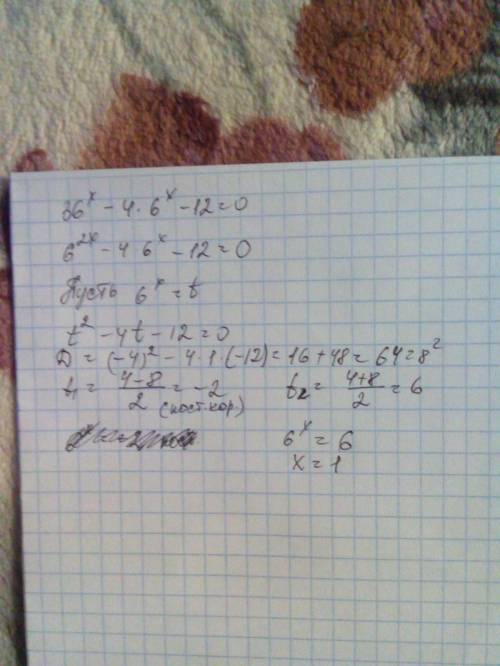 36ˣ - 4 · 6ˣ - 12 = 0
6²ˣ - 4 · 6ˣ - 12 = 0
Пусть 6ˣ = t
t² - 4t - 12 = 0
D = (-4)² - 4 · 1 · (-12) = 16 + 48 = 64 = 8²
t₁ = (4-8)/2 = -2 (пост. кор.) t₂ = (4+8)/2 = 6
6ˣ = 6
x = 1